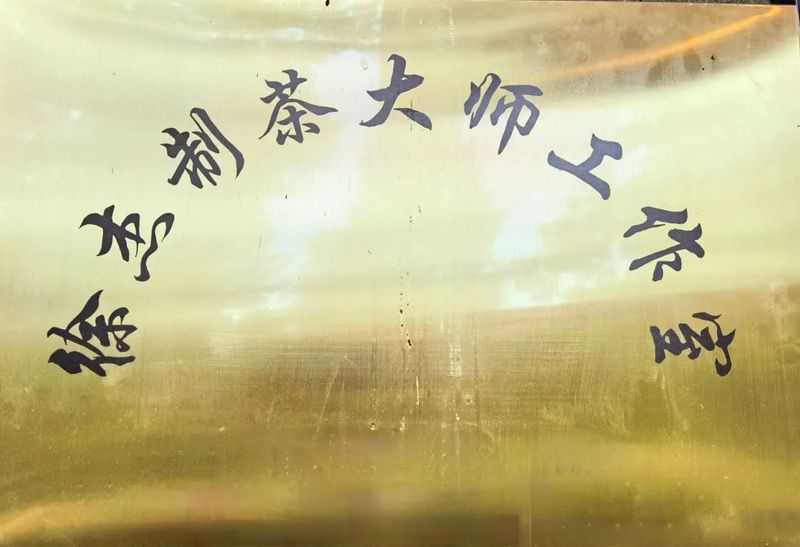 徐制茶大师工作室